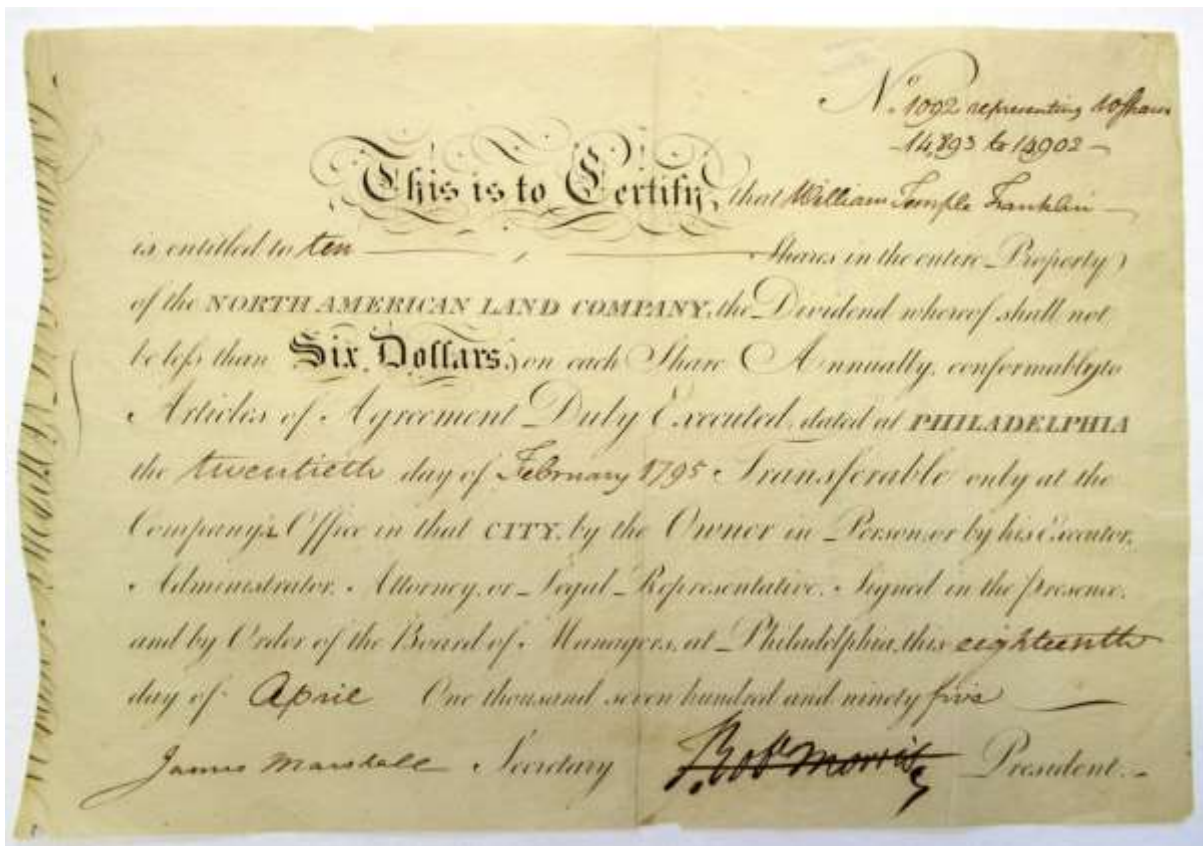 No. 1092 representing 10 Shares
14,893 to 14,902
This is to Certify, that William Temple Franklin
is entitled to ten Shares in the entire Property
of the NORTH AMERICAN LAND COMPANY, the Dividend whereof shall not
be less than Six Dollars, on each Share Annually, conformably to
Articles of Agreement Duly Executed, dated at PHILADELPHIA
the twentieth day of February 1795. Transferable only at the
Company's Office in that CITY, by the Owner in Person, or by his Executor,
Administrator, Attorney, or Legal Representative. Signed in the presence,
and by Order of the Board of Managers, at Philadelphia, this eighteenth
day of April One thousand seven hundred and ninety five
James Marshall Secretary Robt Morris President.